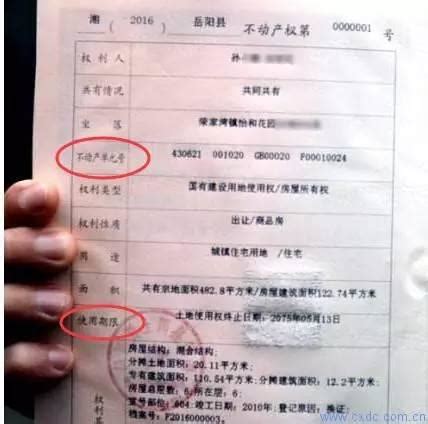 湘 （2016） 岳阳县 不动产权第 0000001 号
权利人 孙
共有情况 共同共有
坐落 荣家湾镇怡和花园
不动产单元号 430621 001020 GB00020 F00010024
权利类型 国有建设用地使用权/房屋所有权
权利性质 出让/商品房
用途 城镇住宅用地 /住宅
面积 共有宗地面积482.8平方米/房屋建筑面积122.74平方米
使用期限 土地使用权终止日期：2075年05月13日
房屋结构：混合结构；
分摊土地面积：20.11平方米；
专有建筑面积：110.54平方米；分摊建筑面积：12.2平方米；
房屋总层数：6；所在层：6；
室号部位：604；竣工日期：2010年；登记原因：换证；
档案号：F2016000003。
权利
www.cxdc.com.cn